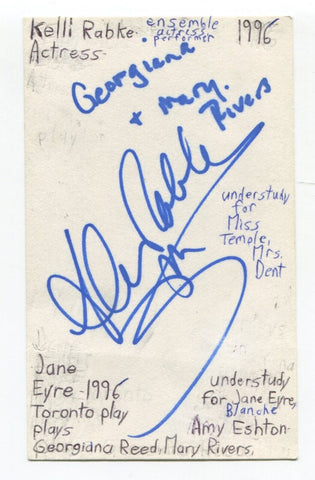 Kelli Rabke
Actress
ensemble
actress
performer
1996
Georgiana
+ Mary
Rivers
understudy
for
Miss
Temple,
Mrs.
Dent
Jane
Eyre-1996
Toronto play
plays
Georgiana Reed, Mary Rivers,
understudy
for Jane Eyre,
Blanche
Amy Eshton